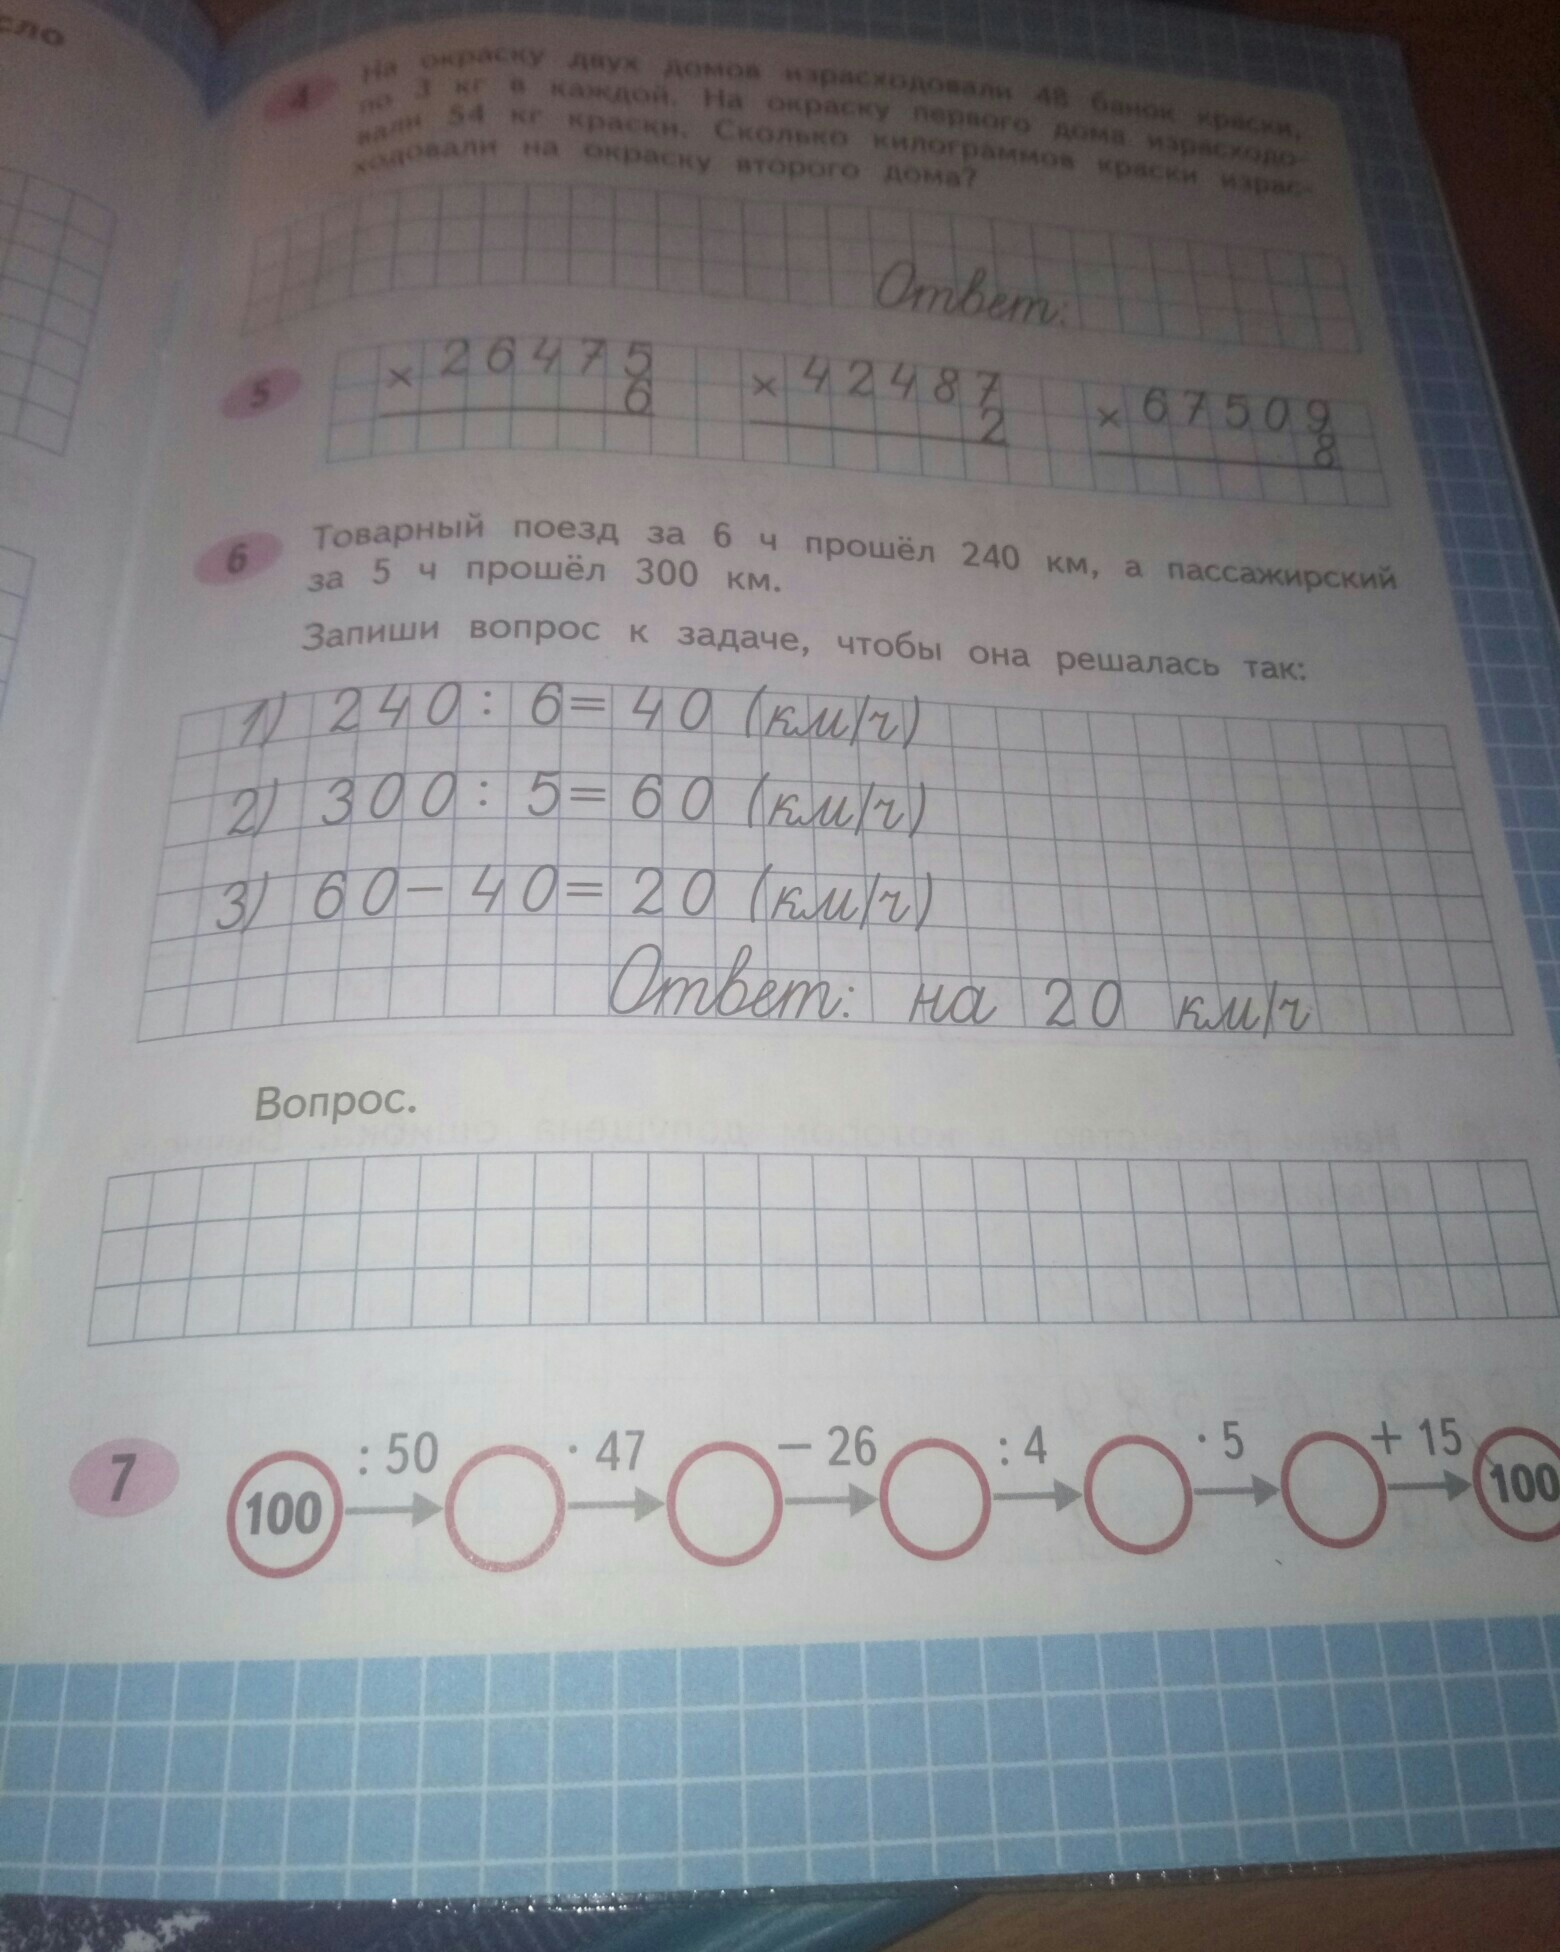 сло
4 На окраску двух домов израсходовали 48 банок краски,
по 3 кг в каждой. На окраску первого дома израсходо-
вали 54 кг краски. Сколько килограммов краски израс-
ходовали на окраску второго дома?
Ответ:
5 × 26475 × 42487 × 67509
6 2 8
6 Товарный поезд за 6 ч прошёл 240 км, а пассажирский
за 5 ч прошёл 300 км.
Запиши вопрос к задаче, чтобы она решалась так:
1) 240 : 6 = 40 (км/ч)
2) 300 : 5 = 60 (км/ч)
3) 60 – 40 = 20 (км/ч)
Ответ: на 20 км/ч
Вопрос.
7 100 : 50 · 47 – 26 : 4 · 5 + 15 100